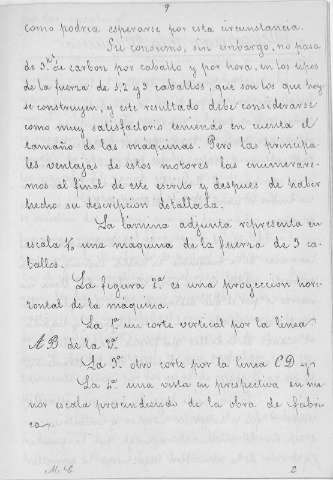 9
como podria esperarse por esta circunstancia.
Su consumo, sin embargo, no pasa
de 3.k de carbon por caballo y por hora, en los tipos
de la fuerza de 1.2 y 3 caballos, que son los que hoy
se construyen, y este resultado debe considerarse
como muy satisfactorio teniendo en cuenta el
tamaño de las maquinas. Pero las principa-
les ventajas de estos motores las enumerare-
mos al final de este escrito y despues de haber
hecho su descripción detallada.
La lámina adjunta representa en
escala una maquina de la fuerza de 3 ca-
ballos.
La figura 2.a es una proyección hori-
zontal de la máquina.
La 1.a un corte vertical por la linea
A B de la
La 3.a otro corte por la linea C D y
La 4.a una vista en perspectiva en me-
nor escala prescindiendo de la obra de fabri-
ca.